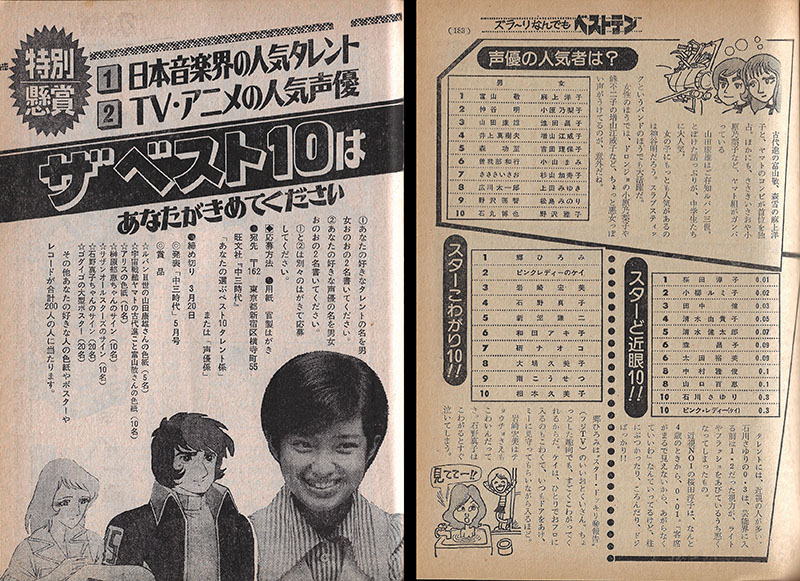 特別
懸賞
1 日本音楽界の人気タレント
2 TV・アニメの人気声優
ザベスト10は
あなたがきめてください
①あなたの好きなタレントの名を男
女おのおの2名書いてください。
②あなたの好きな声優の名を男女
おのおの2名書いてください。
①と②は別々のはがきで応募
してください。
◆応募方法 ●用紙 官製はがき
●宛先 〒162 東京都新宿区横寺町55
旺文社『中三時代』
「あなたの選ぶベスト10タレント係」
または「声優係」
●締め切り 3月20日
◎発表『中三時代』5月号
◎賞品
☆ルパンⅢ世の山田康雄さんの色紙(5名)
☆宇宙戦艦ヤマトの古代進こと富山敬さんの色紙(10名)
☆アリスの色紙(10名)
☆榊原郁恵ちゃんのサイン(10名)
☆サザンオールスターズのサイン(10名)
☆石野真子ちゃんのサイン(20名)
☆ゴダイゴの大型ポスター(20名)
その他あなたの好きな人の色紙やポスターや
レコードが合計200人の人に当たります。
(153)
ズラ〜リなんでもベストテン
声優の人気者は?
男 女
1 富山敬 麻上洋子
2 神谷明 小原乃梨子
3 山田康雄 池田昌子
4 井上真樹夫 増山江威子
5 森功至 吉田理保子
6 曽我部和行 小山まみ
7 ささきいさお 杉山加寿子
8 広川太一郎 上田みゆき
9 野沢那智 松島みのり
10 石丸博也 野沢雅子
古代進の富山敬、森雪の麻上洋
子と、ヤマトのコンビが首位を独
占。ほかにも、ささきいさおや小
原乃梨子など、ヤマト組がガンバ
っている。
山田康雄はご存知ルパン三世。
とぼけた話っぷりが、中学生たち
に大人気。
女の子にもっとも人気があるの
は神谷明だろう。スラップスティッ
クというバンドのほうでも大活躍だ。
女性のほうでは、ドロンジョの小原乃梨子や
峰不二子の増山江威子など、ちょっと悪女っぽ
い声がうけてるのが、意外だね。
スターこわがり10!!
1 郷ひろみ
2 ピンクレディーのケイ
3 岩崎宏美
4 石野真子
5 新沼謙二
6 和田アキ子
7 研ナオコ
8 大場久美子
9 南こうせつ
10 相本久美子
スターど近眼10!!
1 桜田淳子 0.01
2 小柳ルミ子 0.02
3 田中健 0.03
4 清水由貴子 0.05
5 清水健太郎 0.07
6 森昌子 0.09
6 太田裕美 0.09
8 中村雅俊 0.1
8 山口百恵 0.1
10 石川さゆり 0.3
10 ピンク・レディー(ケイ) 0.3
タレントには、近視の人が多い。
石川さゆりの0・3は、芸能界に入
る前は1・2だった視力が、ライト
やフラッシュをあびているうち悪く
なってしまったもの。
近視NO1の桜田淳子は、なんと
4歳のときから、0・01。「客席
がまるで見えないから、あがらなく
ていいわ」なんていってるけど、柱
にぶつかったり、ころんだり、ドジ
ばっかり!!
郷ひろみは、『スター・ドッキリ㊙報告』
(フジTV)のいいおとくいさん。ちょ
っとした趣向でも、すごくこわがってく
れるからだ。ケイは、ひとりでおフロに
入るのもこわくて、いつもドアをあけ、
ミーに見守ってもらいながら入るほど。
岩崎宏美はナ
ウチョさえも
こわいんだって
さ。石野真子は
こわがるとすぐ
泣いてしまう。
見ててー!!